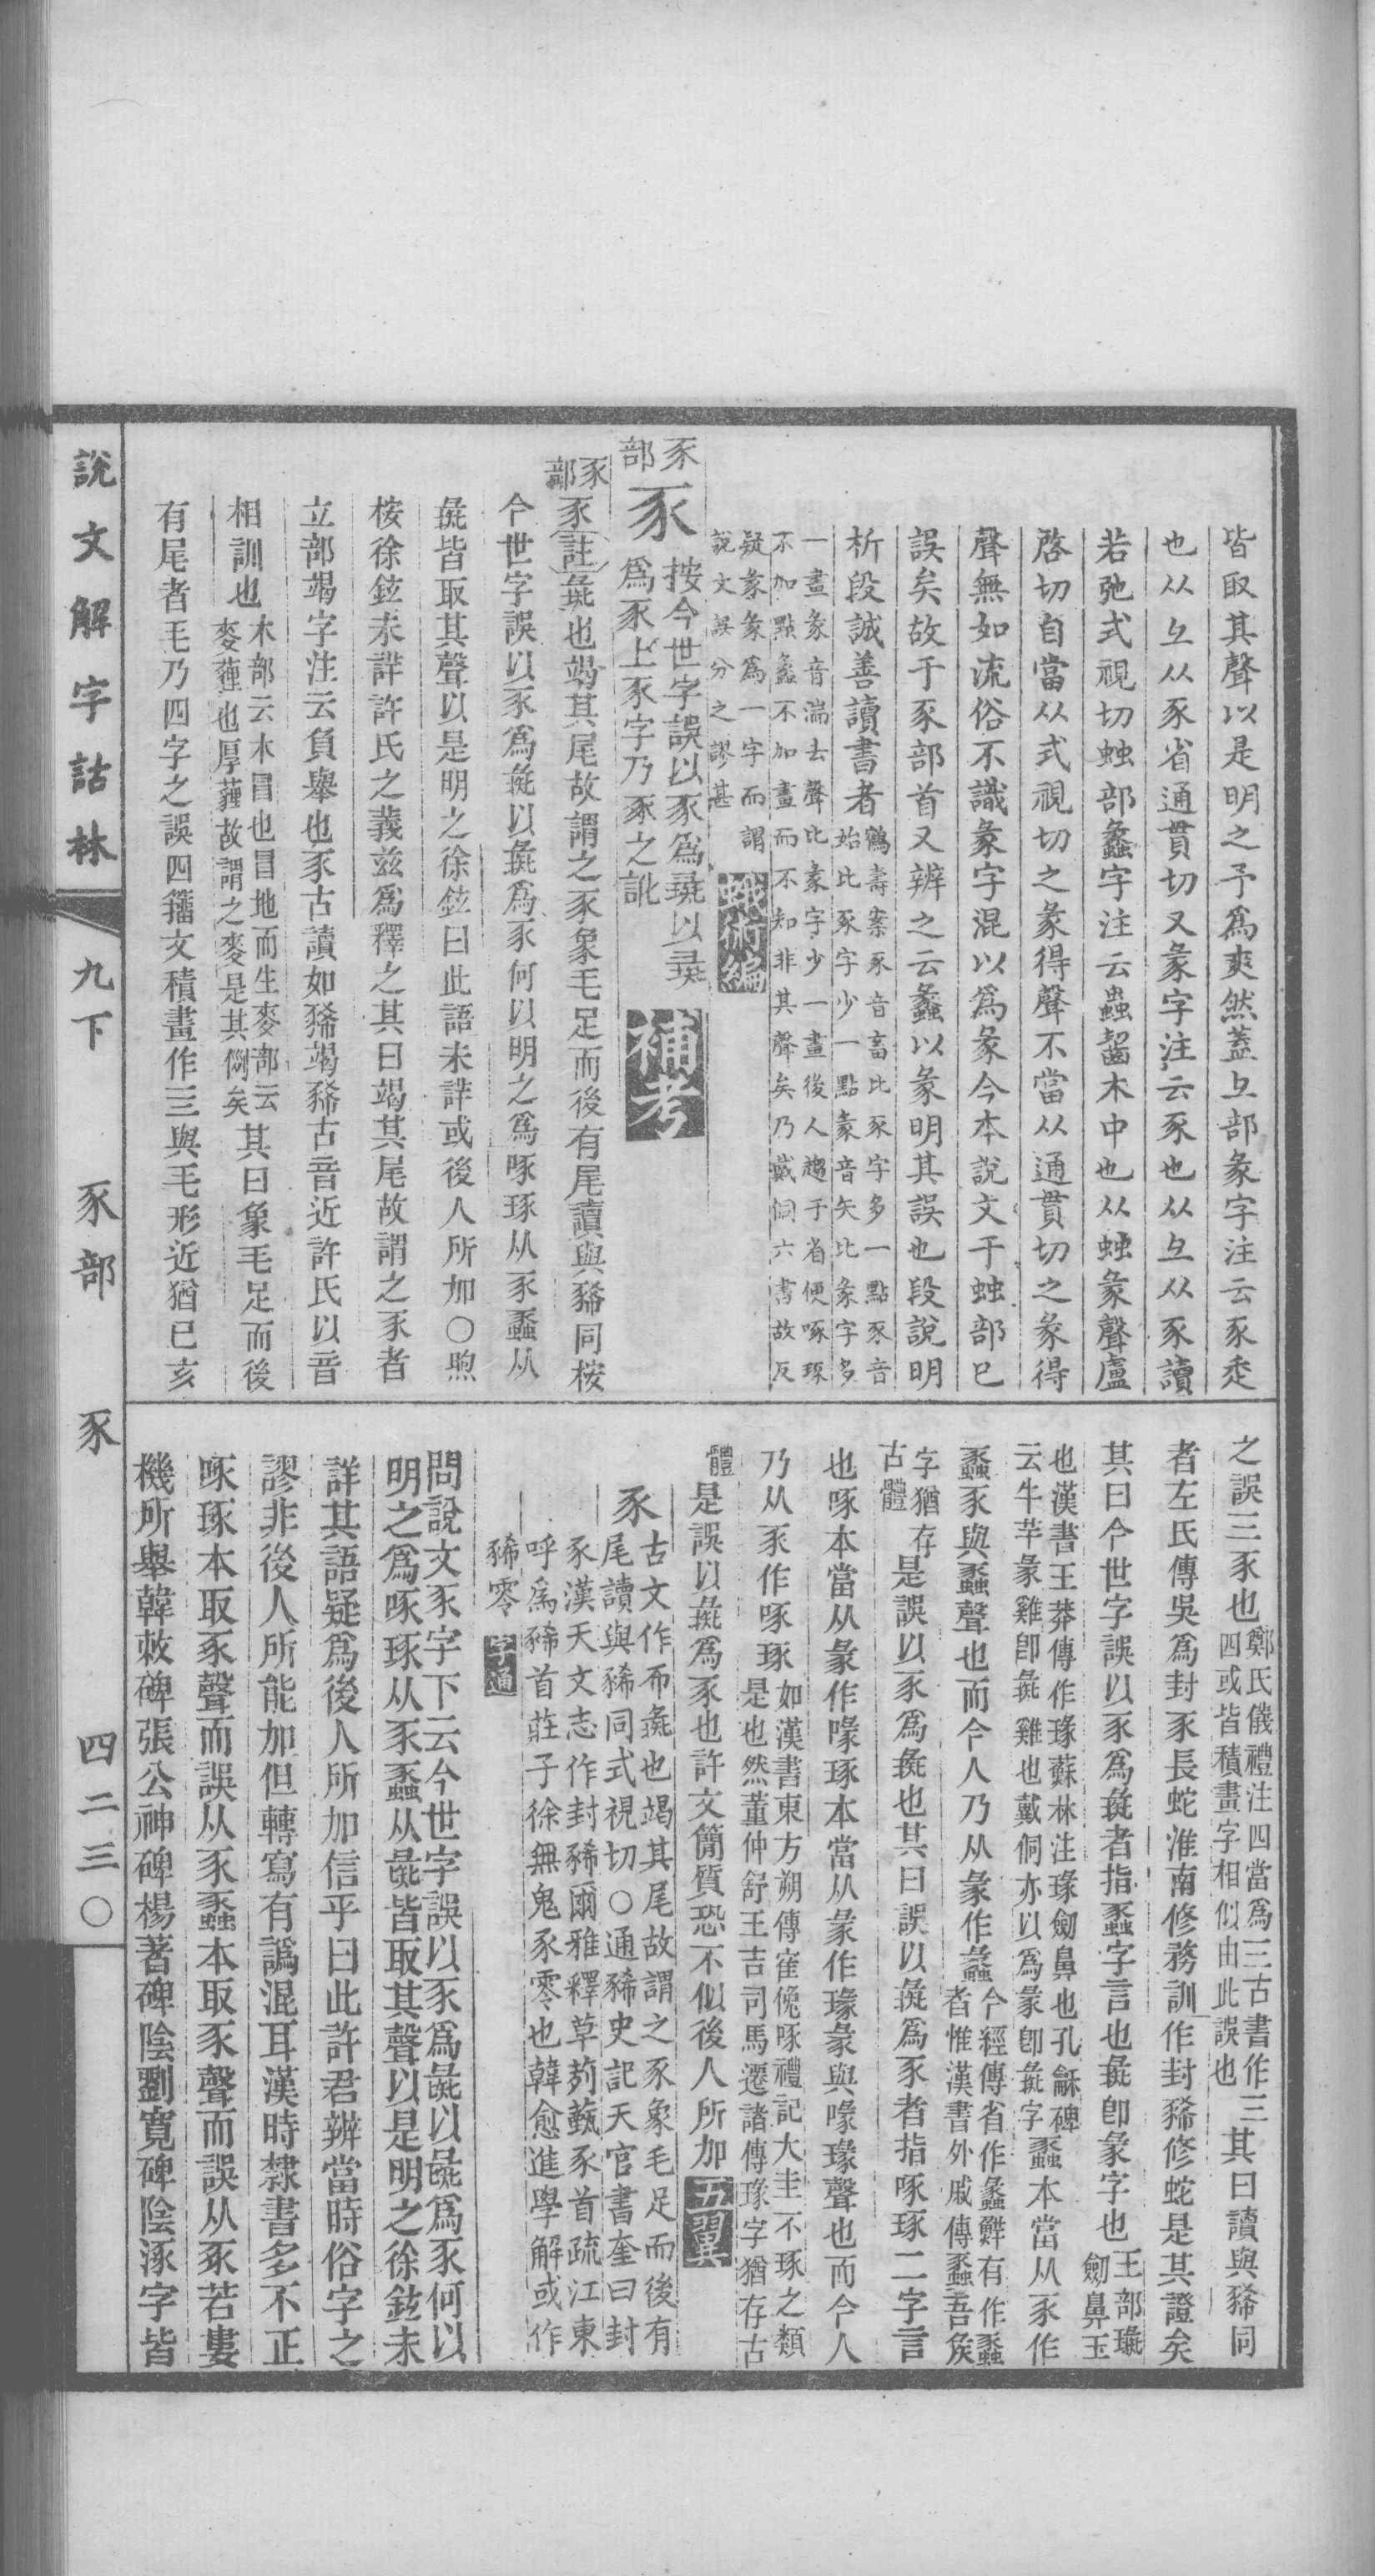 皆取其聲以是明之予爲爽然蓋彑部彖字注云豕走
也从彑从豕省通貫切又彖字注云豕也从彑从豕讀
若弛式視切䖵部蠡字注云蟲齧木中也从䖵彖聲盧
啓切自當从式視切之彖得聲不當从通貫切之彖得
聲無如流俗不識彖字混以爲彖今本說文于䖵部已
誤矣故于豕部首又辨之云蠡以彖明其誤也段說明
析段誠善讀書者
鶴壽案豕音畜比豕字多一點豕音
始比豕字少一點彖音矢比彖字多
一畫彖音湍去聲比彖字少一畫後人趨于省便啄琢
不加點蠡不加畫而不知非其聲矣乃戴侗六書故反
疑彖彖爲一字而謂
說文誤分之謬甚
蛾術編
豕部
豕
按今世字誤以豕爲彘以彘
爲豕上豕字乃豕之訛
補考
豕部
豕註彘也竭其尾故謂之豕象毛足而後有尾讀與豨同桉
今世字誤以豕爲彘以彘爲豕何以明之爲啄琢从豕蟸从
彘皆取其聲以是明之徐鉉曰此語未詳或後人所加○煦
桉徐鉉未詳許氏之義兹爲釋之其曰竭其尾故謂之豕者
立部竭字注云負舉也豕古讀如豨竭豨古音近許氏以音
相訓也
木部云木冒也冒地而生麥部云
麥薶也厚薶故謂之麥是其例矣
其曰象毛足而後
有尾者毛乃四字之誤四籀文積畫作亖與毛形近猶已亥
之誤三豕也
鄭氏儀禮注四當爲三古書作三
四或皆積畫字相似由此誤也
其曰讀與豨同
者左氏傳吳爲封豕長蛇淮南修務訓作封豨修蛇是其證矣
其曰今世字誤以豕爲彘者指蟸字言也彘卽彖字也
王部瑑
劒鼻玉
也漢書王莽傳作瑑蘇林注瑑劒鼻也孔龢碑
云牛羊彖雞卽彘雞也戴侗亦以爲彖卽彘字
蟸本當从豕作
蟸豕與蟸聲也而今人乃从彖作蠡
今經傳省作蠡鮮有作蟸
者惟漢書外戚傳蟸吾矦
字猶存
古體
是誤以豕爲彘也其曰誤以彘爲豕者指啄琢二字言
也啄本當从彖作喙琢本當从彖作瑑彖與喙瑑聲也而今人
乃从豕作啄琢
如漢書東方朔傳寉俛啄禮記大圭不琢之類
是也然董仲舒王吉司馬遷諸傳瑑字猶存古
體
是誤以彘爲豕也許文簡質恐不似後人所加
五翼
豕
古文作𢁓彘也竭其尾故謂之豕象毛足而後有
尾讀與豨同式視切○通豨史記天官書奎曰封
豕漢天文志作封豨爾雅釋草茢薽豕首疏江東
呼爲豨首莊子徐無鬼豕零也韓愈進學解或作
豨零
字通
問說文豕字下云今世字誤以豕爲彘以彘爲豕何以
明之爲啄琢从豕蟸从彘皆取其聲以是明之徐鉉未
詳其語疑爲後人所加信乎曰此許君辨當時俗字之
謬非後人所能加但轉寫有譌混耳漢時隸書多不正
啄琢本取豖聲而誤从豕蟸本取豕聲而誤从豖若婁
機所舉韓敕碑張公神碑楊著碑陰劉寬碑陰涿字皆
說文解字詁林
九下
豕部
豕
四二三〇